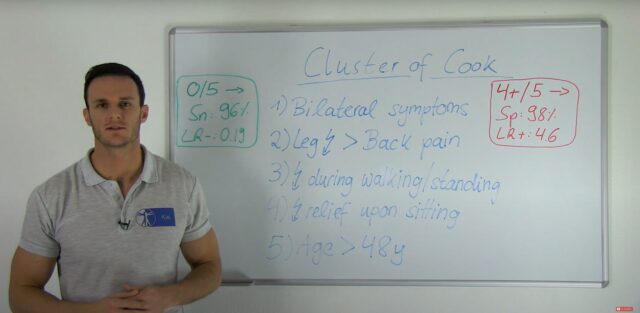 Cluster of Cook
0/5 →
Sn: 96%
LR-: 0.19
1) Bilateral symptoms
2) Leg ↯ > Back pain
3) ↯ during walking/standing
4) ↯ relief upon sitting
5) Age > 48y
4+/5 →
Sp: 98%
LR+: 4.6